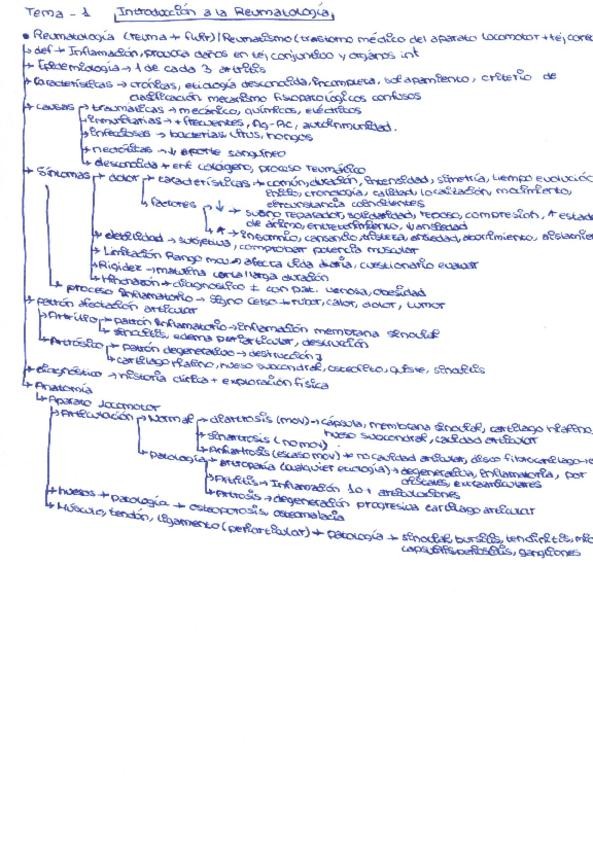 Tema - 1 Introducción a la Reumatología
• Reumatología (reuma → fluir) / Reumatismo (trastorno médico del aparato locomotor + tej. cone
→ def → Inflamación, provoca daños en tej conjundivo y órganos int
→ Epidemiología → 1 de cada 3 artritis
→ Características → crónicas, etiología desconocida, incompleta, solapamiento, criterio de
clasificación mecanismo fisiopatológicos confusos
→ causas → traumáticas → mecánico, químicos, eléctricos
→ inmunitarias → + frecuentes, Ag-Ac, autoinmunidad.
→ infecciosas → bacterias, virus, hongos
→ necróticas → ↓ aporte sanguíneo
→ desconocida → enf colágeno, proceso reumático
→ Síntomas → dolor → características → común, duración, intensidad, simetría, tiempo evolució
inicio, cronología, calidad, localización, movimiento,
circunstancia coincidentes
→ factores → ↓ → sueño reparador, solidaridad, reposo, compresión, ↑ estad
de ánimo, entretenimiento, ↓ ansiedad
↑ → insomnio, cansancio, tristeza, ansiedad, aburrimiento, aislamie
→ debilidad → subjetiva, comprobar potencia muscular
→ Limitación Rango mov → afecta vida diaria, cuestionario evaluar
→ Rigidez → matutina corta/larga duración
→ Hinchazón → diagnóstico ± con pat. venosa, obesidad
→ proceso inflamatorio → signo Celso → rubor, calor, dolor, tumor
→ patrón afectación articular
→ Artrítico → patrón inflamatorio → inflamación membrana sinovial
→ sinovitis, edema periarticular, destrucción
→ Artrósico → patrón degenerativo → destrucción
→ cartílago hialino, hueso subcondral, osteofito, quiste, sinovitis
→ diagnóstico → historia clínica + exploración física
→ Anatomía
→ Aparato locomotor
→ Articulación → Normal → diartrosis (mov) → cápsula, membrana sinovial, cartílago hialino,
hueso subcondral, cavidad articular
→ sinartrosis (no mov)
→ Anfiartrosis (escaso mov) → no cavidad articular, disco fibrocartílago
→ Patología → artropatía (cualquier etiología) → degenerativa, inflamatoria, por
cristales, extraarticulares
→ Artritis → Inflamación 1 o + articulaciones
→ Artrosis → degeneración progresiva cartílago articular
→ huesos → patología → osteoporosis, osteomalacia
→ Músculo, tendón, ligamento (periarticular) → patología → sinovial, bursitis, tendinitis, mio
capsulitis, periostitis, gangliones